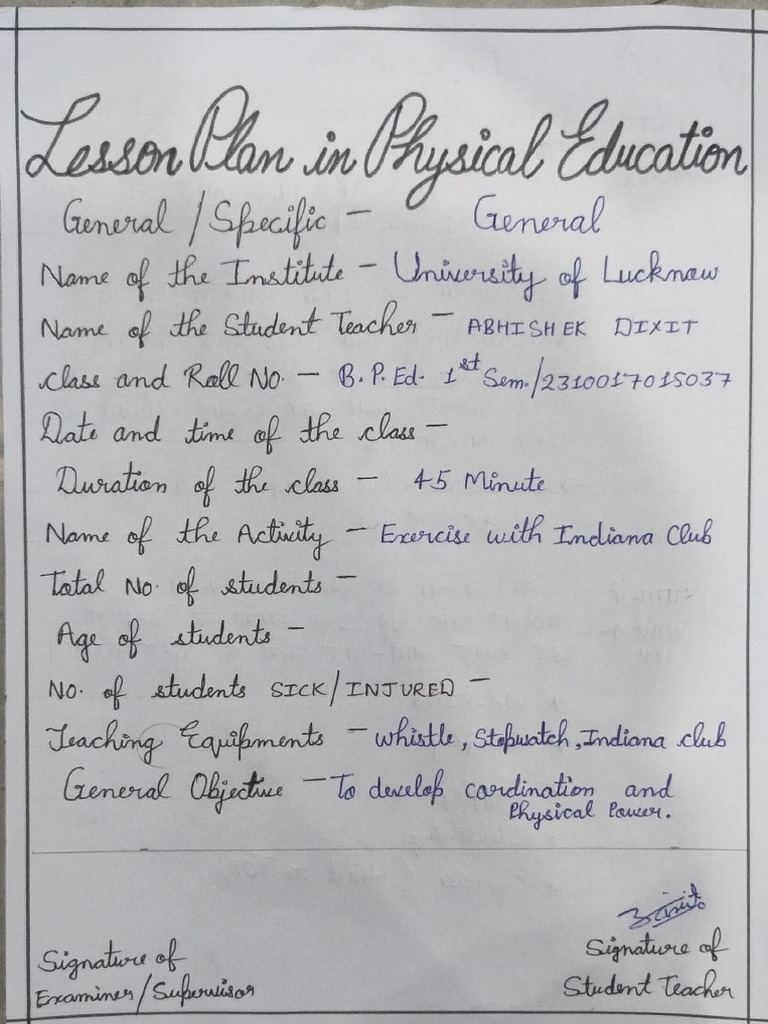 Lesson Plan in Physical Education
General / Specific – General
Name of the Institute – University of Lucknow
Name of the Student Teacher – ABHISHEK DIXIT
class and Roll No. – B. P. Ed. 1st Sem./2310017015037
Date and time of the class –
Duration of the class – 45 Minute
Name of the Activity – Exercise with Indiana Club
Total No. of students –
Age of students –
No. of students SICK/INJURED –
Teaching Equipments – whistle, Stopwatch, Indiana club
General Objective – To develop cordination and
Physical Power.
Signature of
Examiner/Supervisor
Signature of
Student Teacher